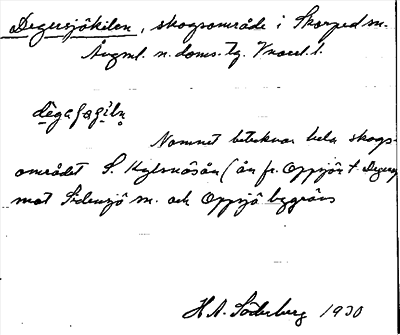 Degersjökilen, skogsområde i Skorped sn.
Ångml. n. doms. tg. Vnorrl. l.
Namnet betecknar hela skogs-
området S. (ån fr. Oppsjön t. Degersj
mot Sidensjö sn. och Oppsjö bygräns
H. A. Söderberg 1930